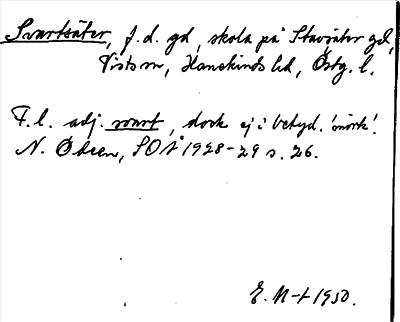 Svartsäter, f.d. gd, skola på Stavsäter gd,
Vists sn, Hanekinds hd, Östg. l.
F.l. adj. svart, dock ej i betyd. 'mörk'.
N. Ödeen, SOÅ 1928-29 s. 26.
E. N-t 1950.